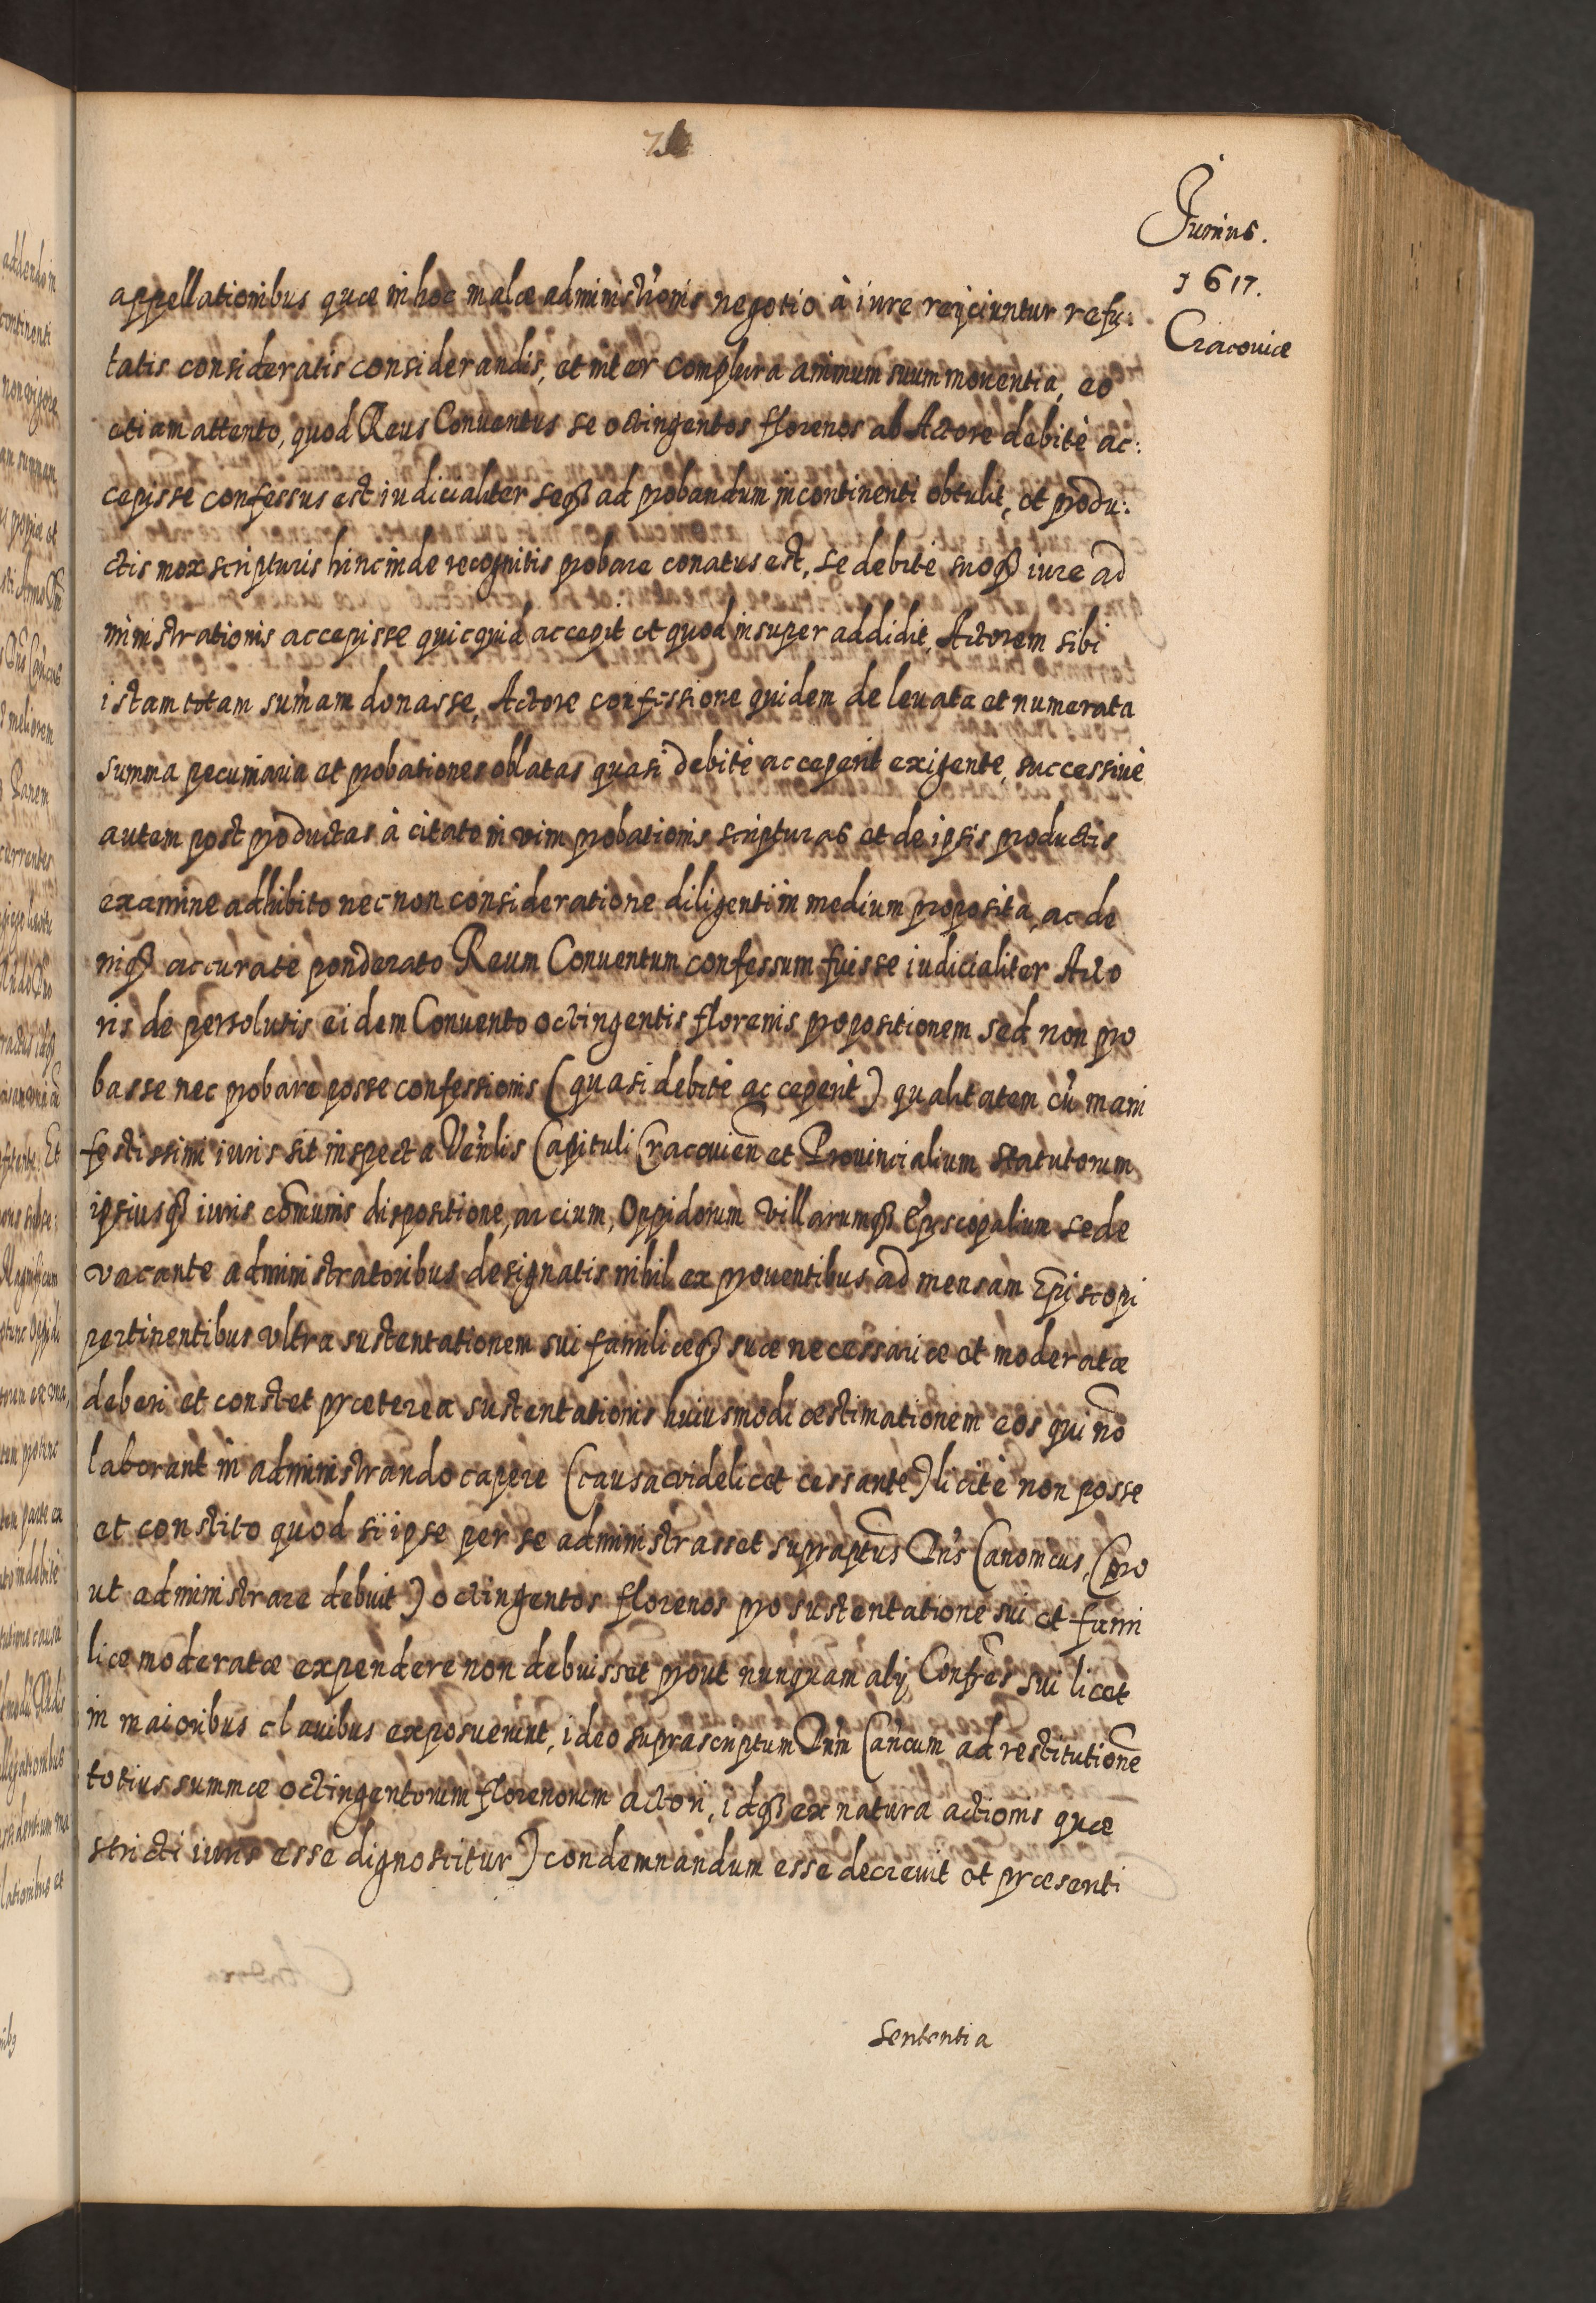 Junius.
1617.
Cracouiæ
appellationibus quæ in hoc malæ administr̃onis negotio à iure reijciuntur refu:
tatis consideratis considerandis, et inter complura animum suum mouentia, eo
etiam attento, quod Reus Conuentus se octingentos florenos ab Actore debitè ac:
cepisse confessus est iudicialiter seqꝫ ad probandum incontinenti obtulit, et produ:
ctis mox scripturis hinc inde recognitis probare conatus est, se debitè suoqꝫ iure ad
ministrationis accepisse quicquid accepit et quod insuper addidit, Actorem sibi
istam totam sum̃am donasse, Actore confessione quidem de leuata et numerata
summa pecuniaria et probationes oblatas quasi debitè acceperit exigente, successiuè
autem post productas à citato in vim probationis scripturas et de ipsis productis
examine adhibito nec non consideratione diligenti in medium proposita, ac de
niqꝫ accuratè ponderato Reum Conuentum confessum fuisse iudicialiter Acto
ris de persolutis eidem Conuento octingentis florenis propositionem sed non pro
basse nec probare posse confessionis (quasi debitè acceperit) qualitatem cũ mani
festissimi iuris sit inspecta Ven̄lis Capituli Cracouien̄ et Prouincialium statutorum
ipsiusqꝫ iuris com̃unis dispositione, arcium, Oppidorum villarumqꝫ Ep̃scopalium sede
vacante administratoribus designatis nihil ex prouentibus ad mensam Episcopi
pertinentibus vltra sustentationem sui familiæqꝫ suæ necessariæ et moderatæ
deberi et constet præterea sustentationis huiusmodi æstimationem eos qui nõ
laborant in administrando capere (causa videlicet cessante) licitè non posse
et constito quod si ipse per se administrasset supraptũs Dn̄s Canonicus, (pro
ut administrare debuit) octingentos florenos pro sustentatione sui et fami
liæ moderatæ expendere non debuisset prout nunquam alij Confr̃es sui licet
in maioribus clauibus exposuerint, ideo suprascriptum Dn̄m Can̄cum ad restitutionẽ
totius summæ octingentorum florenorum actori, idqꝫ ex natura actionis quæ
stricti iuris esse dignoscitur) condemnandum esse decreuit et præsenti
sententia